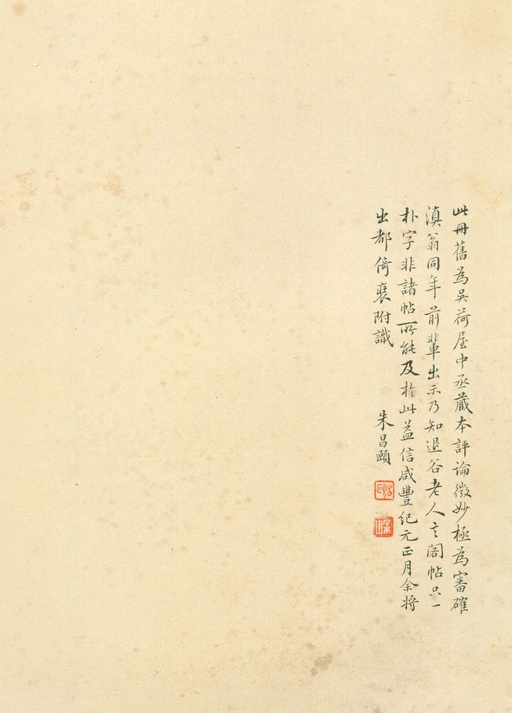 此冊舊為吳荷屋中丞藏本評論微妙極為審確
滇翁同年前輩出示乃知退谷老人言閣帖只一
朴字非諸帖所能及於此益信咸豐紀元正月余將
出都倚裝附識
朱昌頤